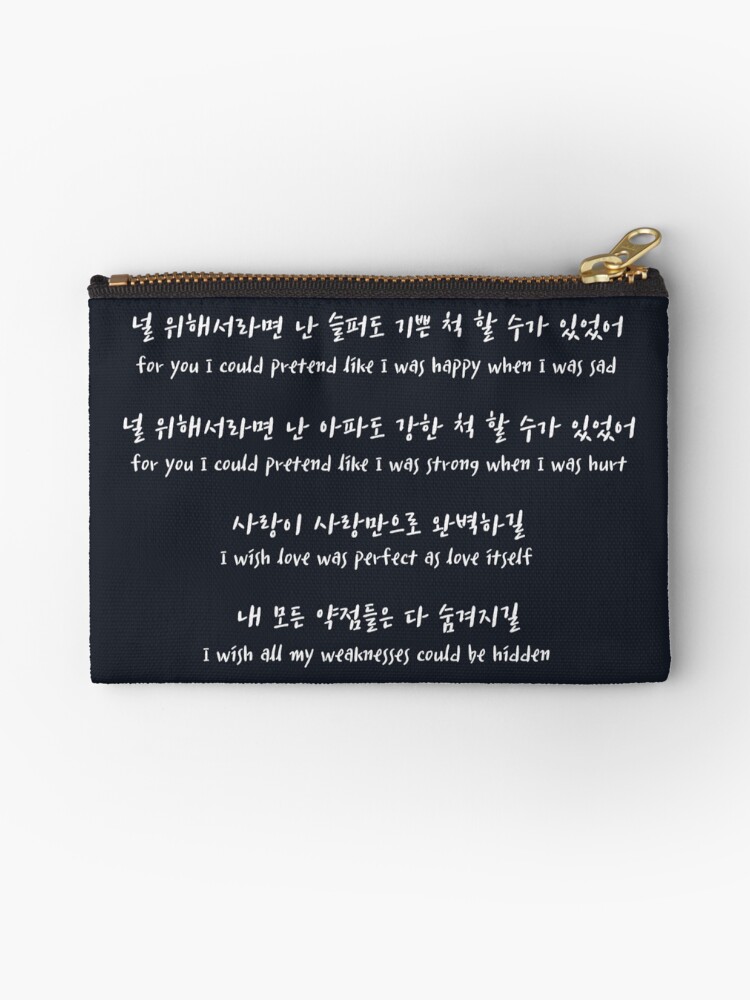 널 위해서라면 난 슬퍼도 기쁜 척 할 수가 있었어
for you I could pretend like I was happy when I was sad
널 위해서라면 난 아파도 강한 척 할 수가 있었어
for you I could pretend like I was strong when I was hurt
사랑이 사랑만으로 완벽하길
I wish love was perfect as love itself
내 모든 약점들은 다 숨겨지길
I wish all my weaknesses could be hidden